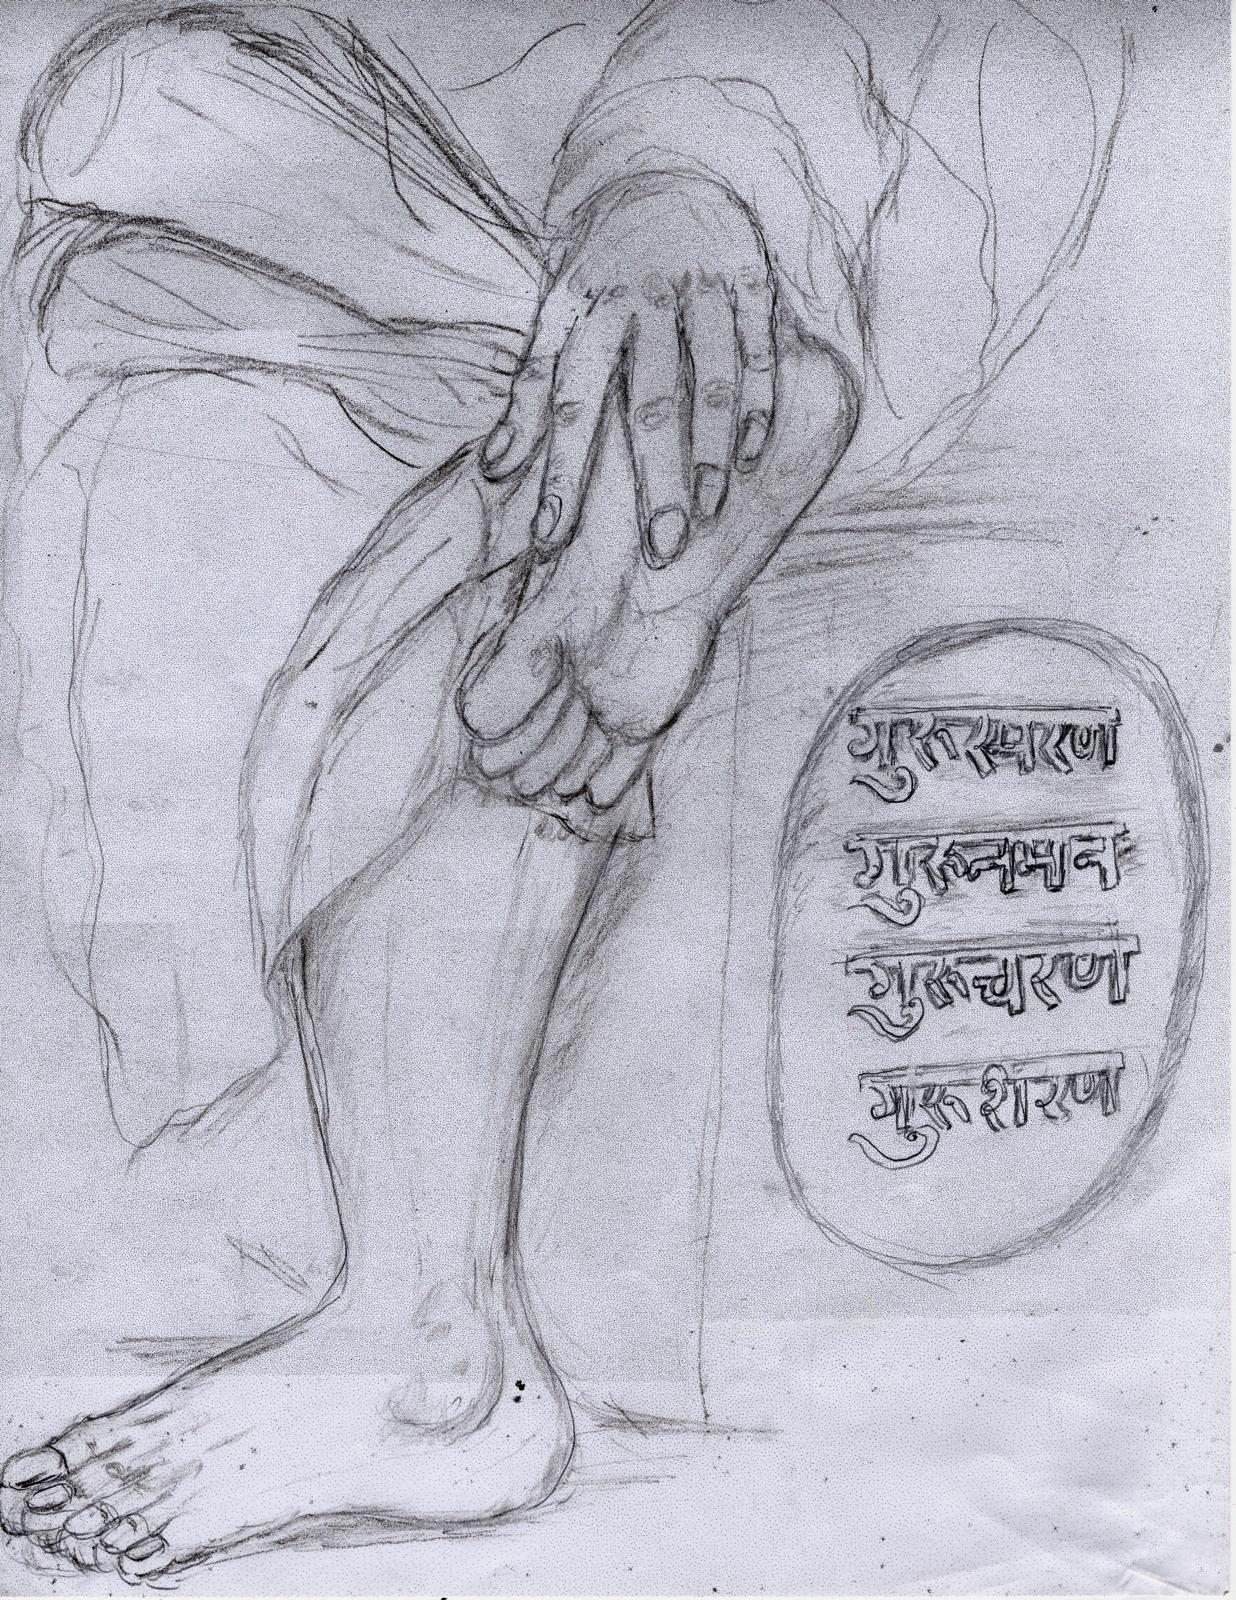 गुरुस्मरण
गुरुनमन
गुरुचरण
गुरु शरण